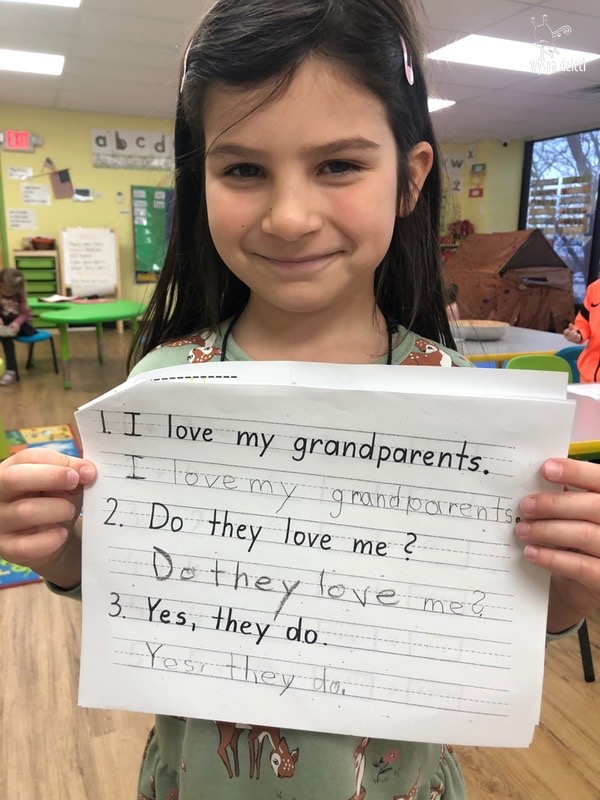 wyspa dzieci
EXIT
a b c d
W
1. I love my grandparents.
I love my grandparents.
2. Do they love me?
Do they love me?
3. Yes, they do.
Yes, they do.